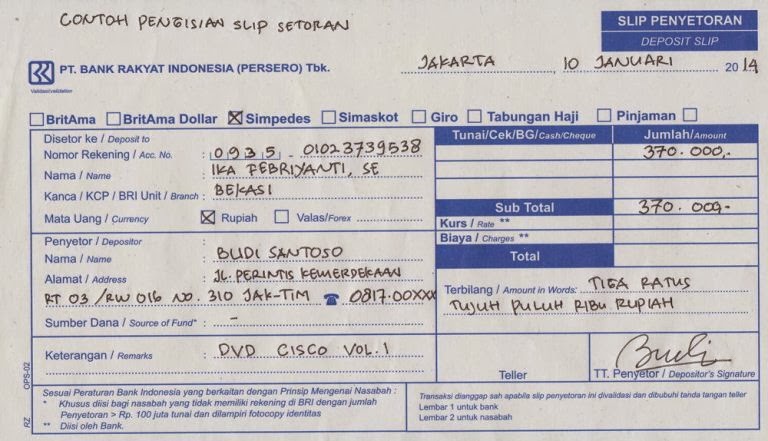 CONTOH PENGISIAN SLIP SETORAN
SLIP PENYETORAN
DEPOSIT SLIP
BRI PT. BANK RAKYAT INDONESIA (PERSERO) Tbk.
Validasi/validation
JAKARTA, 10 JANUARI 2014
BritAma BritAma Dollar Simpedes Simaskot Giro Tabungan Haji Pinjaman
Disetor ke / Deposit to
Nomor Rekening / Acc. No. : 0935 - 01023739538
Nama / Name : IKA FEBRIYANTI, SE
Kanca / KCP / BRI Unit / Branch : BEKASI
Mata Uang / Currency Rupiah Valas/Forex
Tunai/Cek/BG/Cash/Cheque Jumlah/Amount
370.000,-
Sub Total 370.000-
Kurs / Rate **
Biaya / Charges **
Total
Penyetor / Depositor
Nama / Name : BUDI SANTOSO
Alamat / Address : JL. PERINTIS KEMERDEKAAN
RT 03 / RW 016 NO. 310 JAK-TIM ☎ 0817.00XXX
Sumber Dana / Source of Fund* : -
Terbilang / Amount in Words: TIGA RATUS
TUJUH PULUH RIBU RUPIAH
Keterangan / Remarks : DVD CISCO VOL.1
Budi
Teller TT. Penyetor / Depositor's Signature
RZ OPS-02
Sesuai Peraturan Bank Indonesia yang berkaitan dengan Prinsip Mengenai Nasabah :
* Khusus diisi bagi nasabah yang tidak memiliki rekening di BRI dengan jumlah
Penyetoran > Rp. 100 juta tunai dan dilampiri fotocopy identitas
** Diisi oleh Bank.
Transaksi dianggap sah apabila slip penyetoran ini divalidasi dan dibubuhi tanda tangan teller
Lembar 1 untuk bank
Lembar 2 untuk nasabah